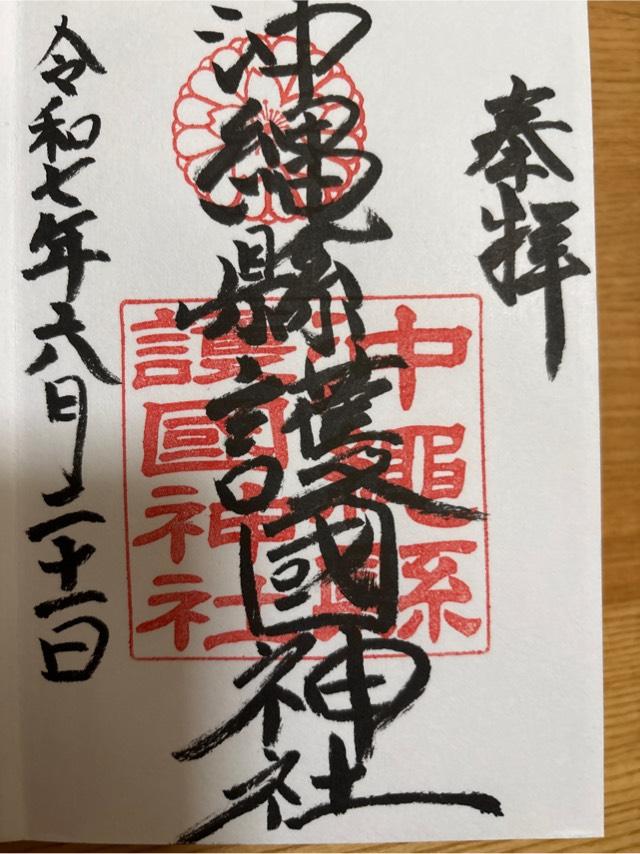 奉拝
沖縄縣護國神社
沖縄縣
護國神社
令和七年六月二十一日